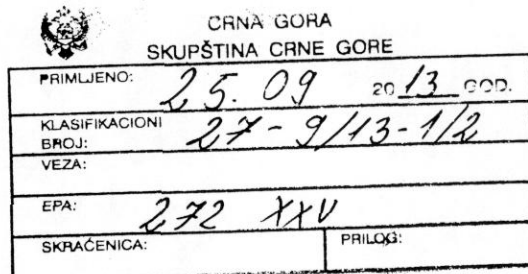 CRNA GORA
SKUPŠTINA CRNE GORE
PRIMLJENO: 25. 09 2013 GOD.
KLASIFIKACIONI BROJ: 27-9/13-1/2
VEZA:
EPA: 272 XXV
SKRAĆENICA: PRILOG: